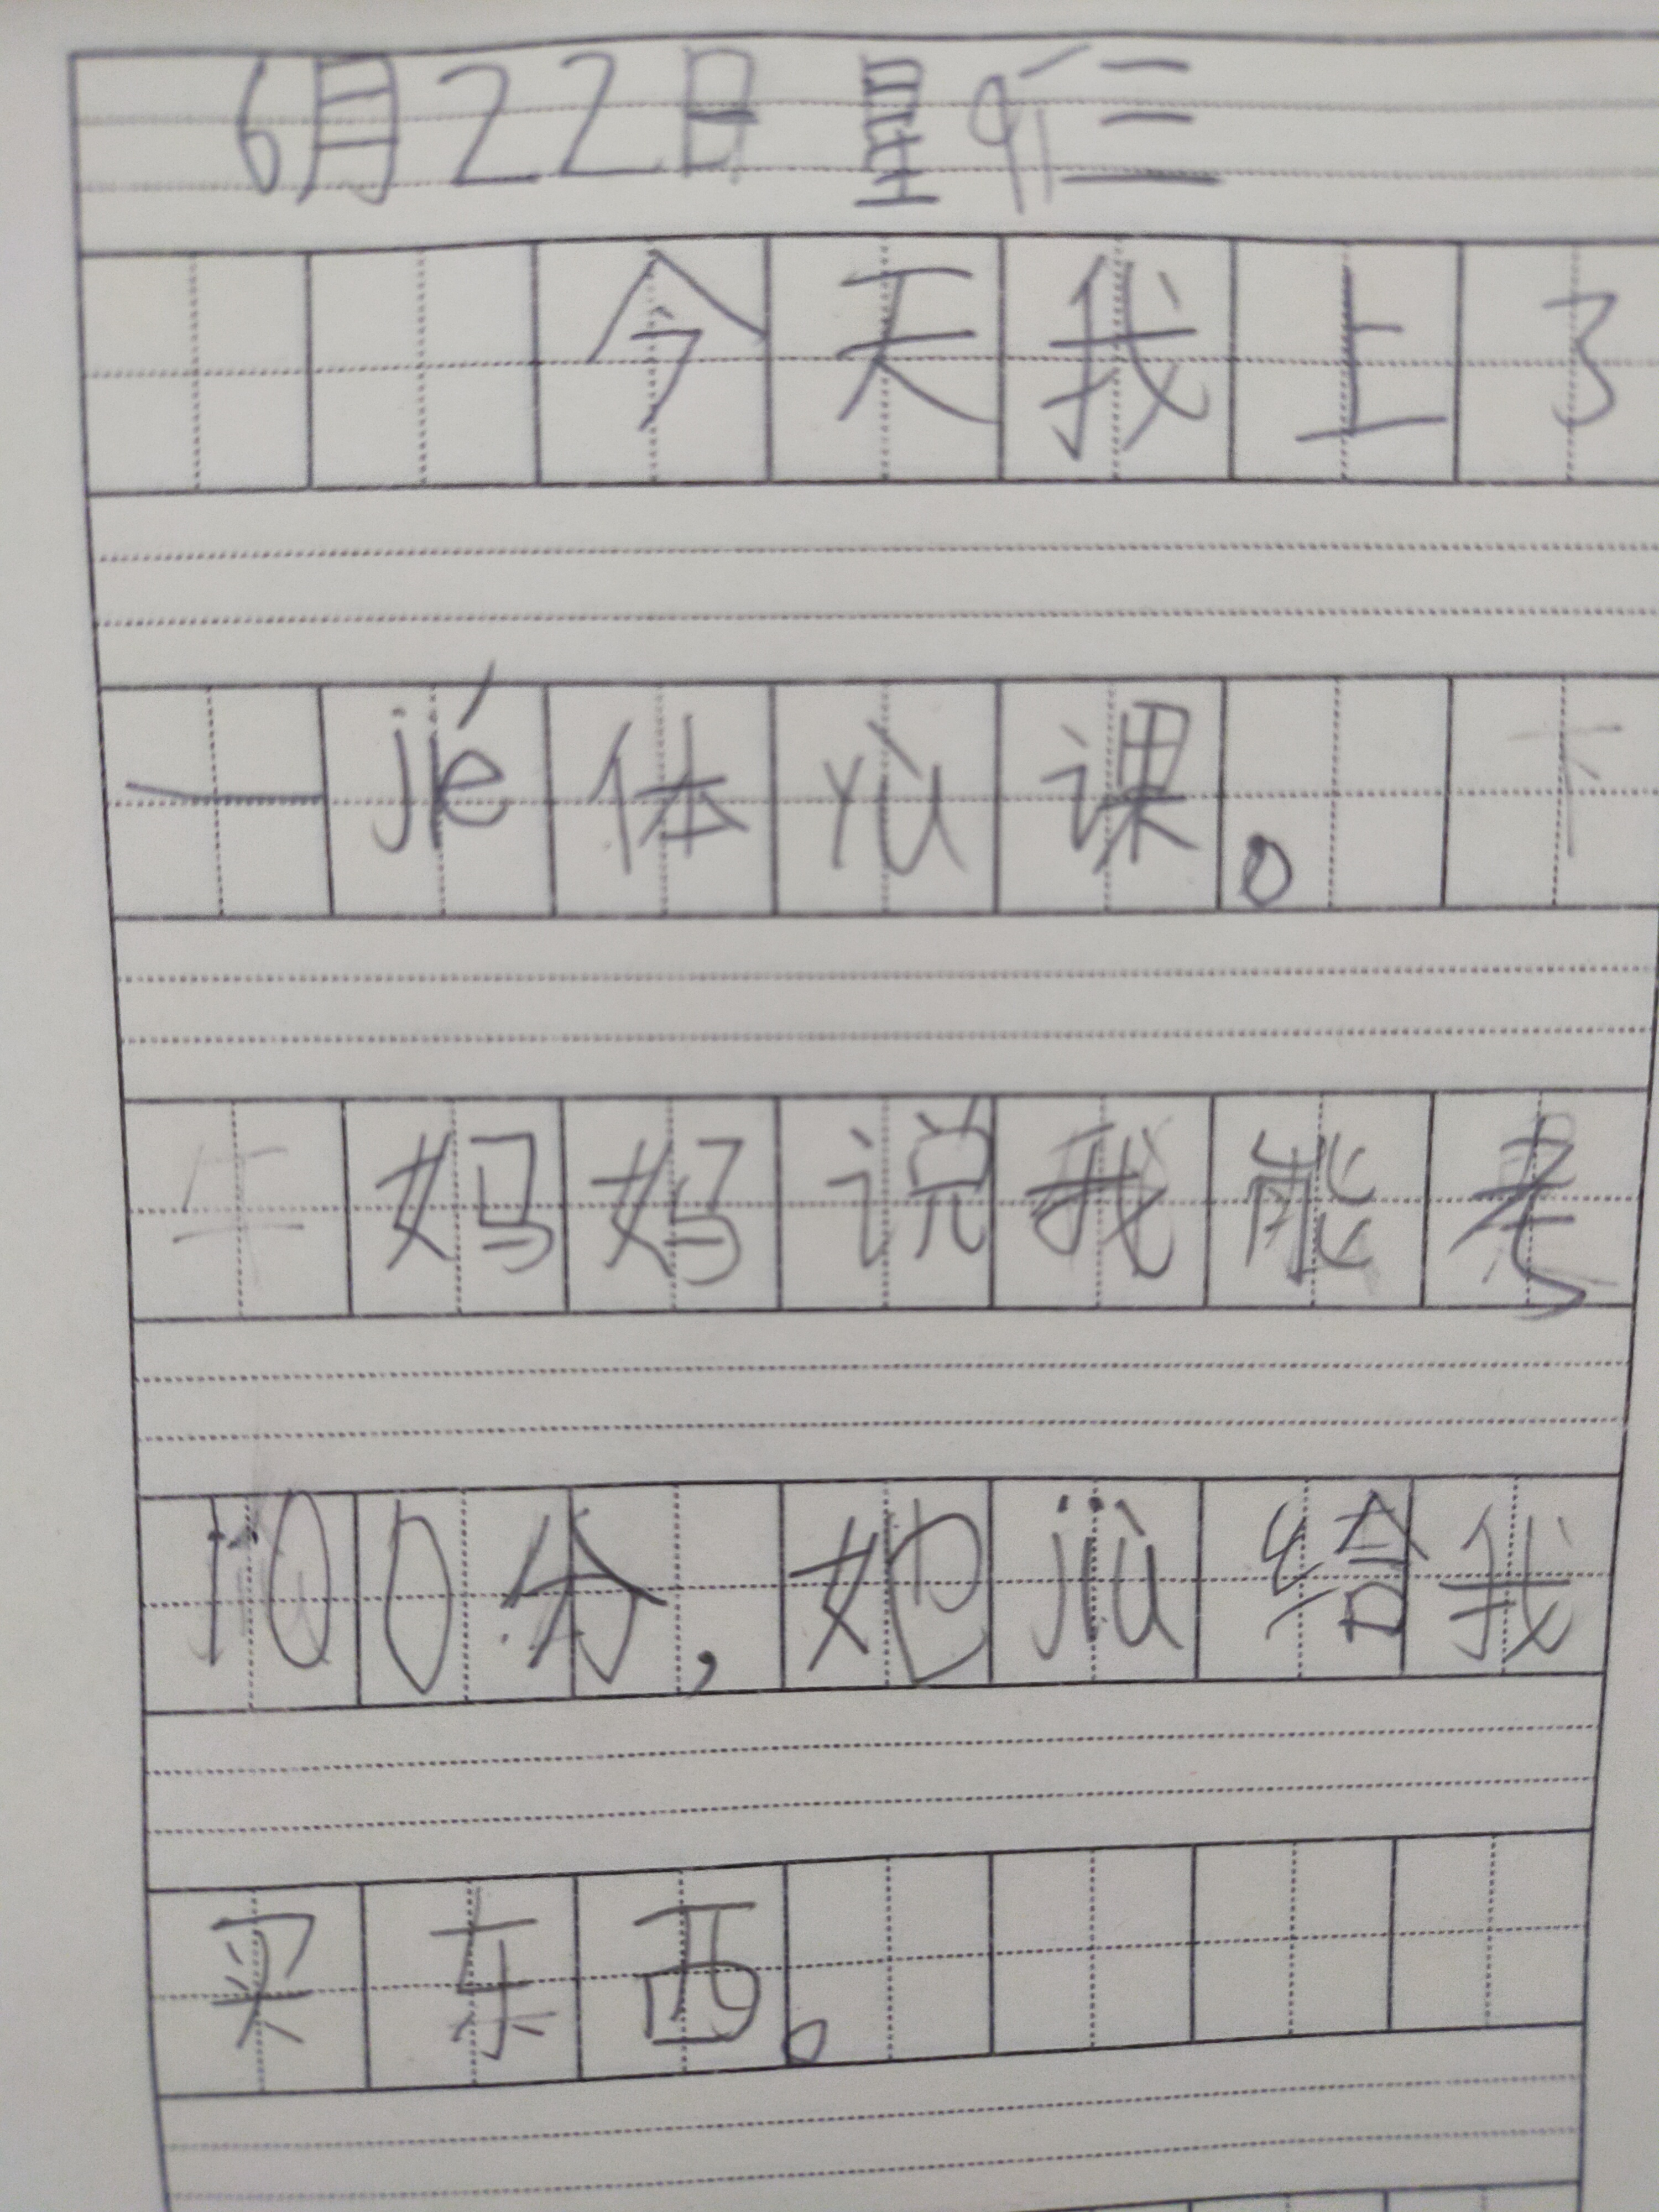 6月22日 星qi三
今天我上了
一jié体yù课。下
午妈妈说我能考
100分，她jiù给我
买东西。